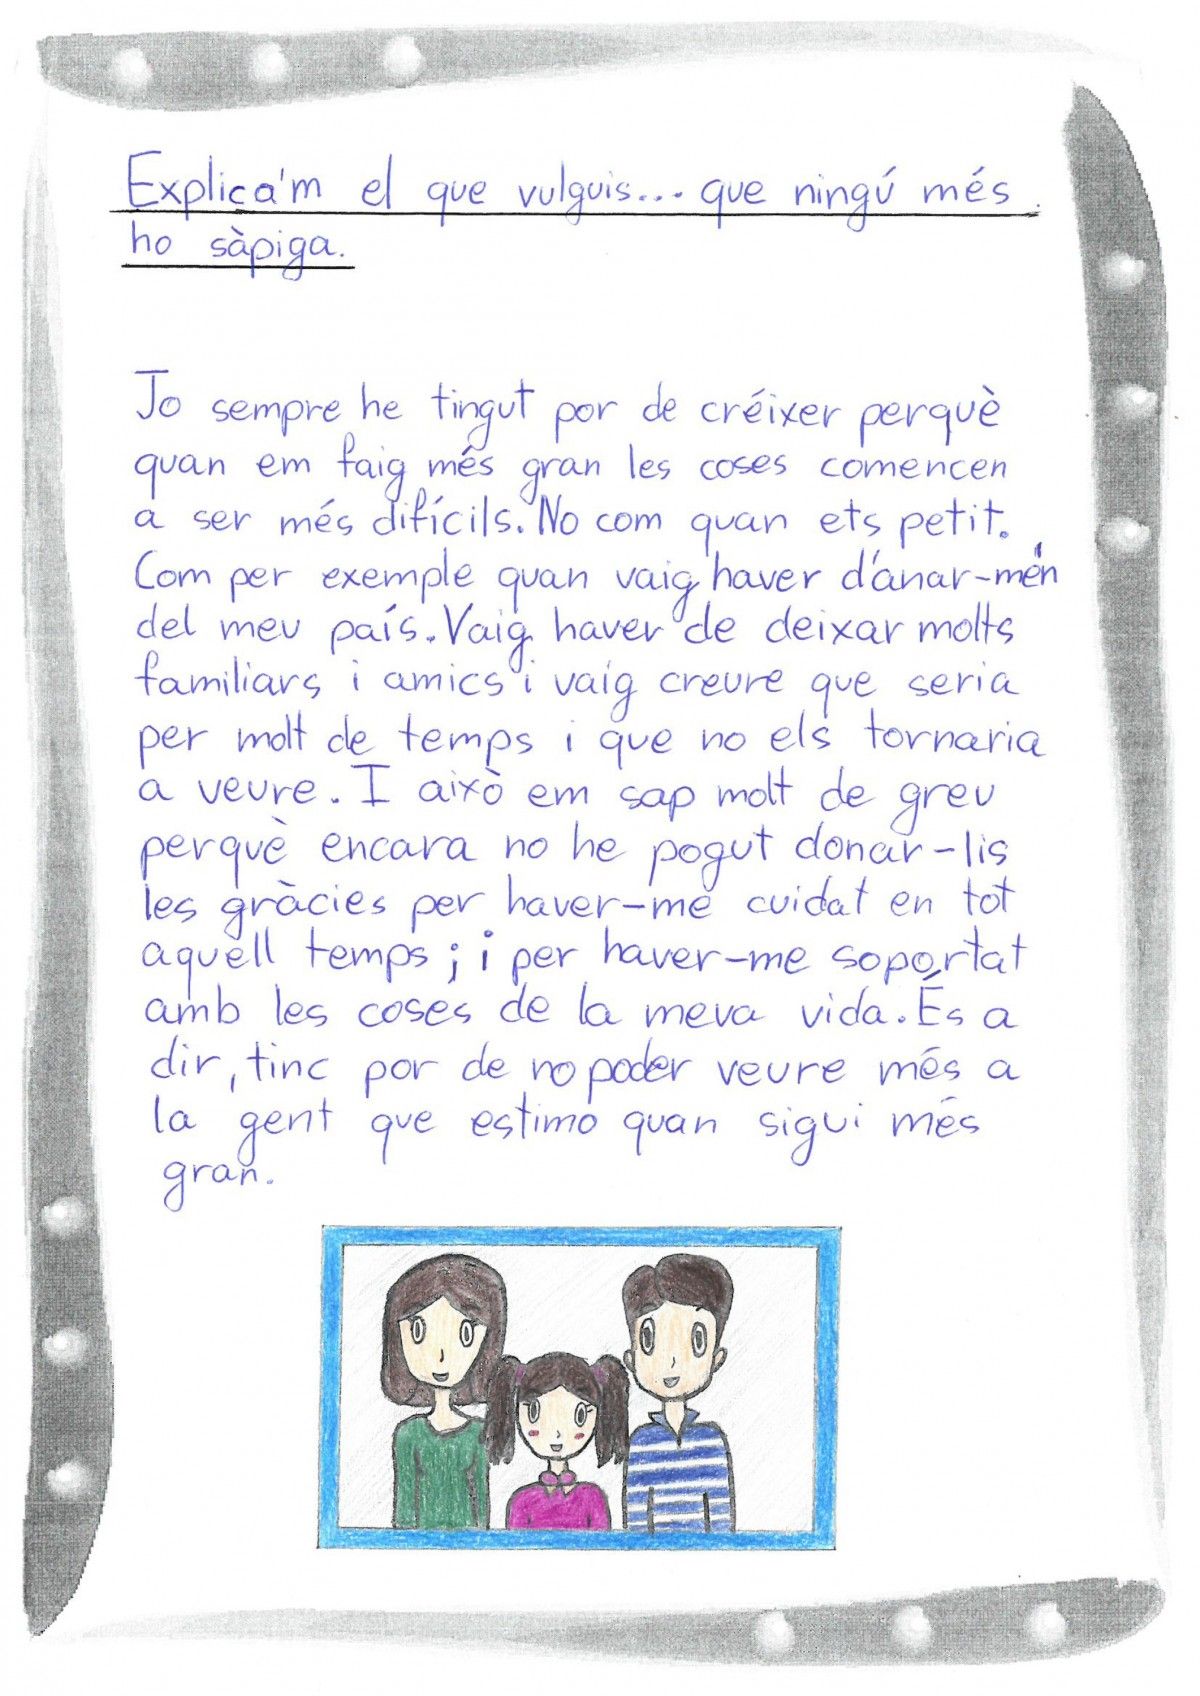 Explica'm el que vulguis... que ningú més
ho sàpiga.
Jo sempre he tingut por de créixer perquè
quan em faig més gran les coses comencen
a ser més difícils. No com quan ets petit.
Com per exemple quan vaig haver d'anar-me'n
del meu país. Vaig haver de deixar molts
familiars i amics i vaig creure que seria
per molt de temps i que no els tornaria
a veure. I això em sap molt de greu
perquè encara no he pogut donar-lis
les gràcies per haver-me cuidat en tot
aquell temps; i per haver-me soportat
amb les coses de la meva vida. És a
dir, tinc por de no poder veure més a
la gent que estimo quan sigui més
gran.